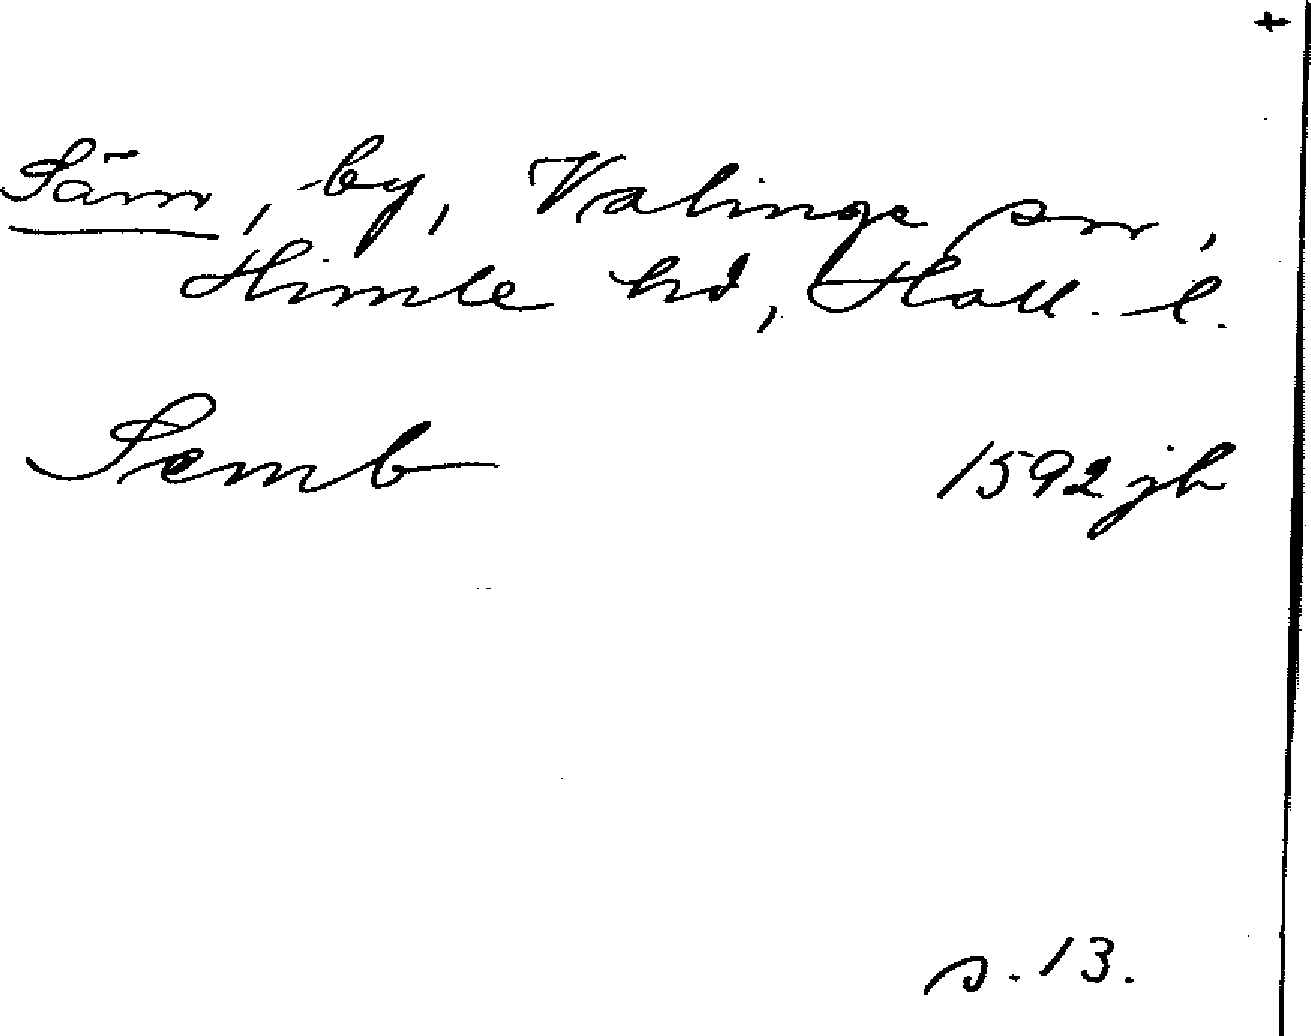 +
Säm, by, Valinge sn,
Himle hd, Hall. l.
Semb 1592 jb
s. 13.